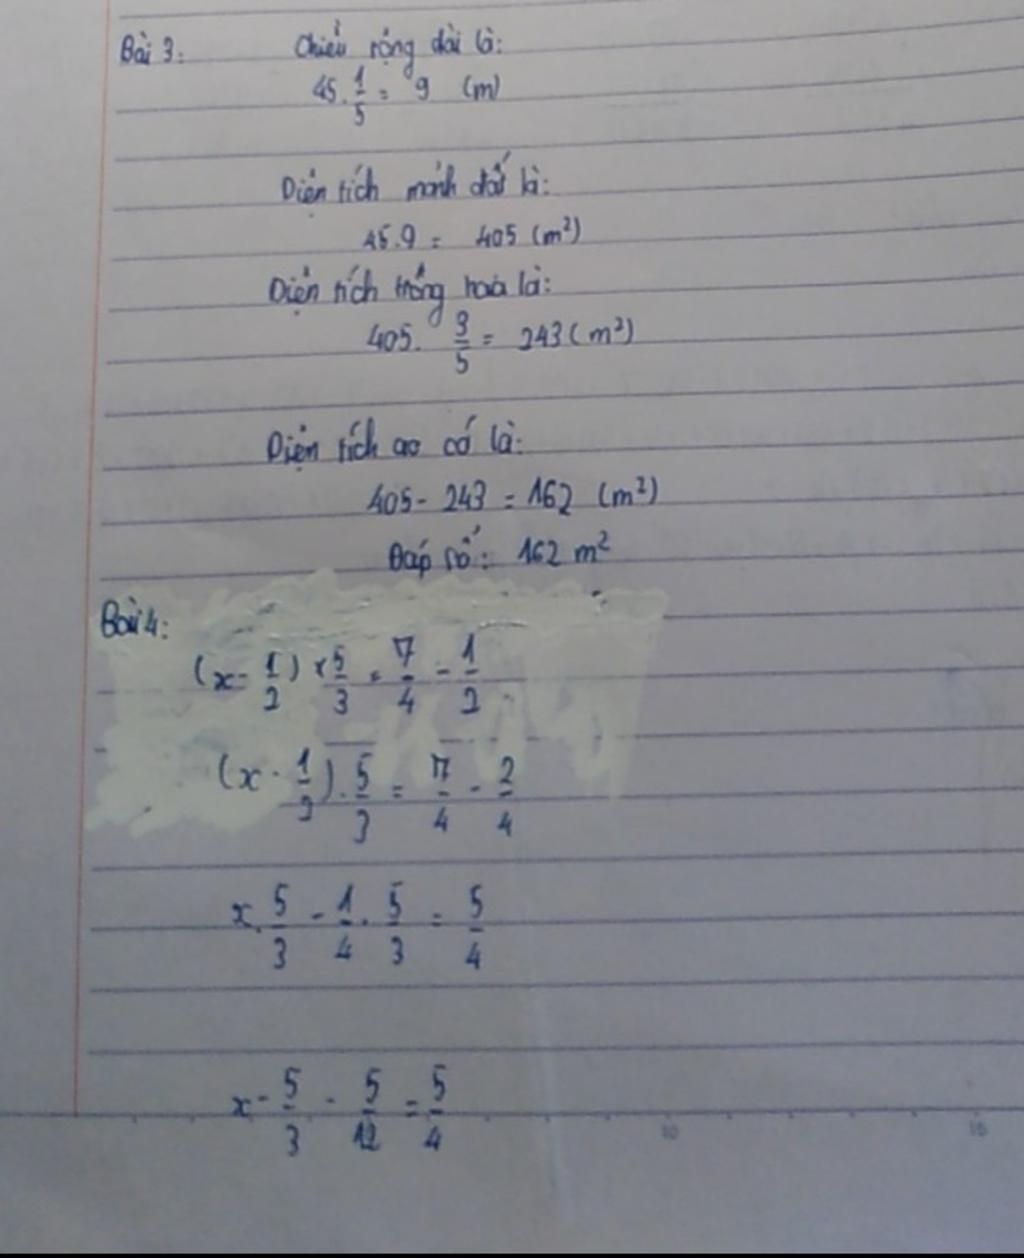 Bài 3: Chiều rộng dài là:
45 . 1/5 = 9 (m)
Diện tích mảnh đất là:
45 . 9 = 405 (m²)
Diện tích trồng hoa là:
405 . 3/5 = 243 (m²)
Diện tích ao cá là:
405 - 243 = 162 (m²)
Đáp số: 162 m²
Bài 4:
(x - 1/2) × 5/3 = 7/4 - 1/2
(x - 1/2) . 5/3 = 7/4 - 2/4
x . 5/3 - 1/4 . 5/3 = 5/4
x - 5/3 - 5/12 = 5/4
10 15